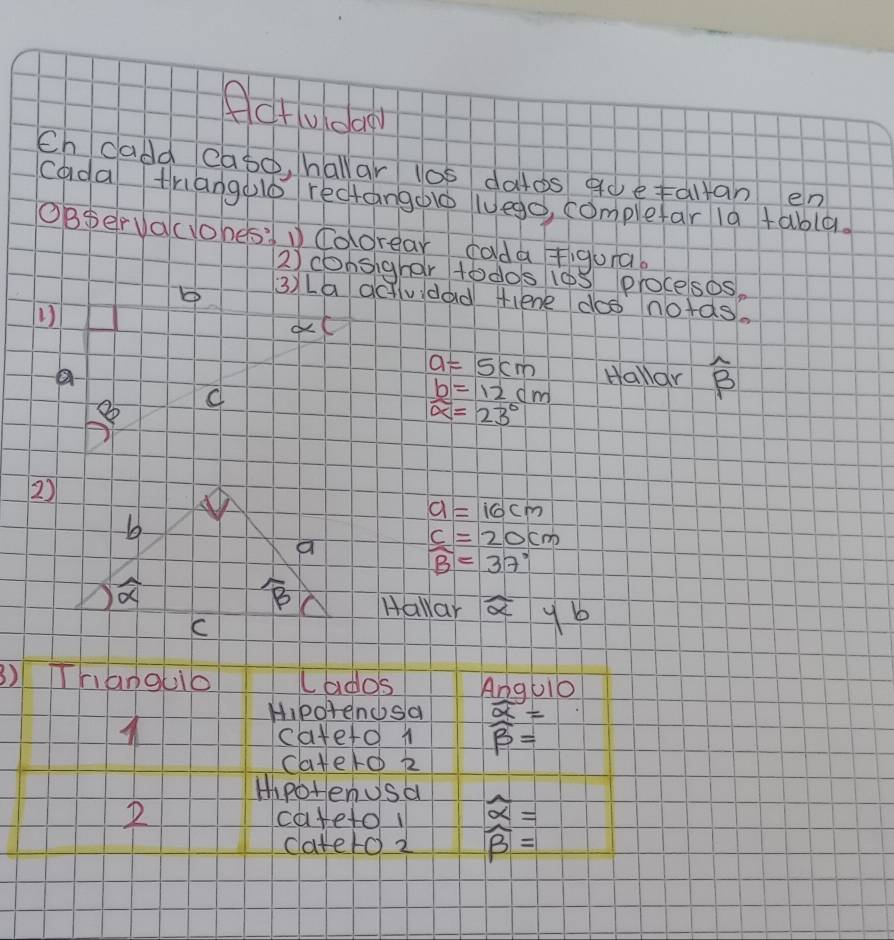 Actividad
En cada caso, hallar los datos que faltan en
cada triangulo rectangolo luego, completar la tabla.
Observaciones: 1) Colorear cada figura.
2) consignar todos los procesos.
3) La actividad tiene dos notas.
1) b
α
a = 5cm
Hallar β̂
a
b = 12 cm
β c
α̂ = 23°
2)
a = 16cm
b
c = 20cm
a
β̂ = 37°
α̂ β̂
Hallar α̂ y b
c
3) Triangulo Lados Angulo
Hipotenusa α̂ =
1 cateto 1 β̂ =
cateto 2
Hipotenusa
2 cateto 1 α̂ =
cateto 2 β̂ =